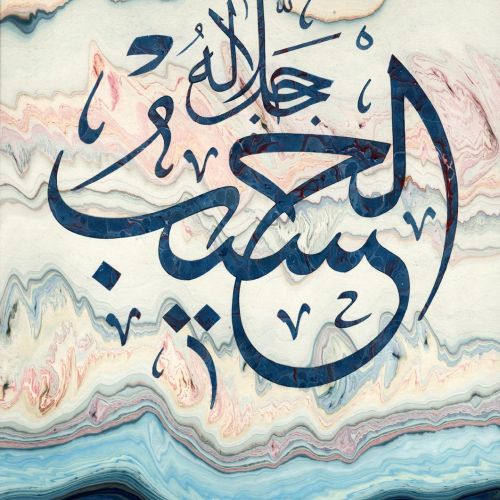 الحسيب
جل جلاله